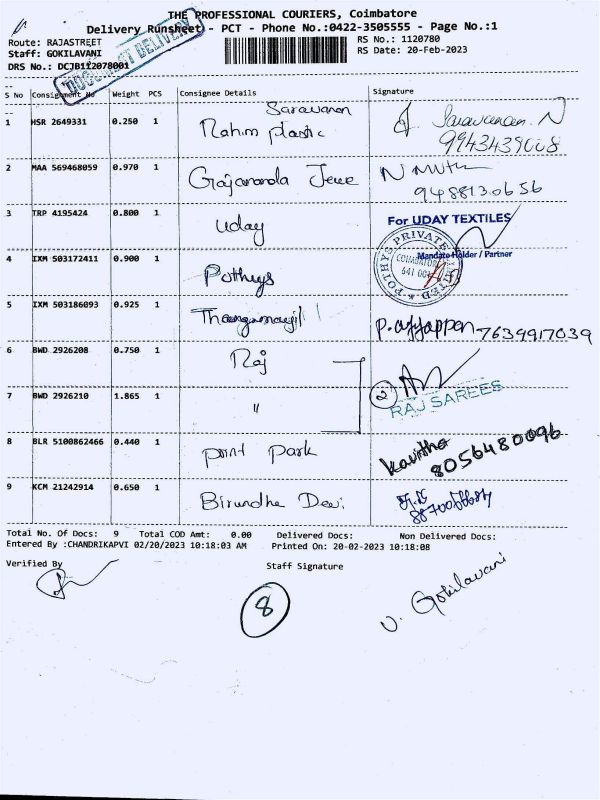 THE PROFESSIONAL COURIERS, Coimbatore
Delivery Runsheet - PCT - Phone No.:0422-3505555 - Page No.:1
Route: RAJASTREET
Staff: GOKILAVANI
DRS No.: DCJB112078001
RS No.: 1120780
RS Date: 20-Feb-2023
DOCUMENT DELIVERY
S No Consignment No Weight PCS Consignee Details Signature
1 HSR 2649331 0.250 1 Saravanan
Rahim plastic Saravanan. N
2 MAA 569468059 0.970 1 N Muthu
9488130656
3 TRP 4195424 0.800 1 Uday For UDAY TEXTILES
Mandate Holder / Partner
4 IXM 503172411 0.900 1 Pothys POTHYS PRIVATE LIMITED
COIMBATORE
641 001
5 IXM 503186093 0.925 1 Thangamayil P. Ayyappan 7639917039
6 BWD 2926208 0.750 1 Raj
7 BWD 2926210 1.865 1 " 2 RAJ SAREES
8 BLR 5100862466 0.440 1 print Park Kavitha
8056480096
9 KCM 21242914 0.650 1 Birundha Devi
Total No. Of Docs: 9 Total COD Amt: 0.00 Delivered Docs: Non Delivered Docs:
Entered By :CHANDRIKAPVI 02/20/2023 10:18:03 AM Printed On: 20-02-2023 10:18:08
Verified By Staff Signature
8
V. Gokilavani